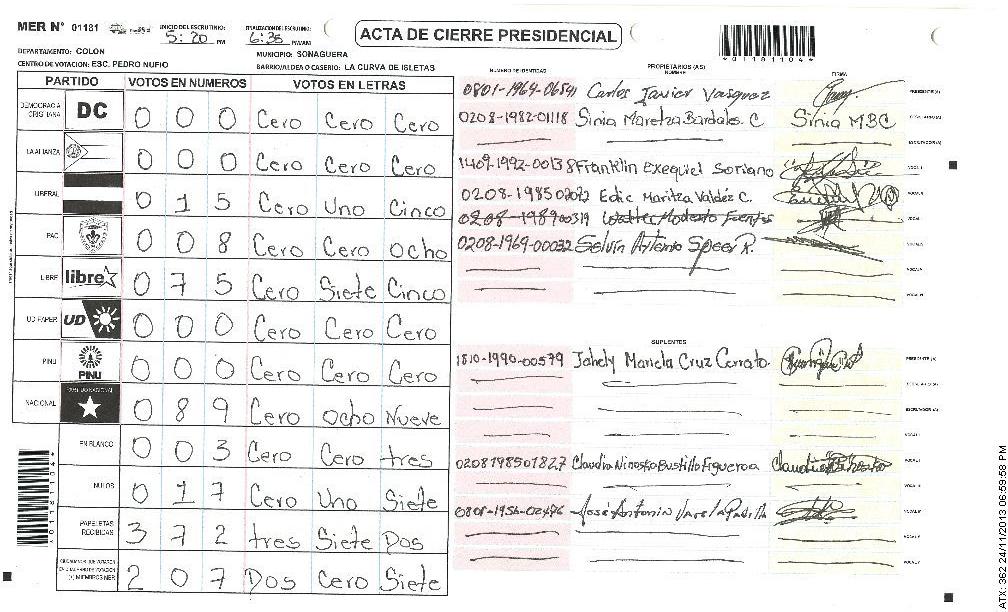 MER N° 01181
INICIO DEL ESCRUTINIO: 5:20 PM
FINALIZACION DEL ESCRUTINIO: 6:35 PM/AM
ACTA DE CIERRE PRESIDENCIAL
*01181104*
DEPARTAMENTO: COLON
MUNICIPIO: SONAGUERA
CENTRO DE VOTACION: ESC. PEDRO NUFIO
BARRIO/ALDEA O CASERIO: LA CURVA DE ISLETAS
PARTIDO VOTOS EN NUMEROS VOTOS EN LETRAS
DEMOCRACIA CRISTIANA DC 0 0 0 Cero Cero Cero
LA ALIANZA 0 0 0 Cero Cero Cero
LIBERAL 0 1 5 Cero Uno Cinco
PAC 0 0 8 Cero Cero Ocho
LIBRE libre 0 7 5 Cero Siete Cinco
UD FAPER UD 0 0 0 Cero Cero Cero
PINU PINU 0 0 0 Cero Cero Cero
NACIONAL PARTIDO NACIONAL 0 8 9 Cero Ocho Nueve
EN BLANCO 0 0 3 Cero Cero tres
NULOS 0 1 7 Cero Uno Siete
PAPELETAS RECIBIDAS 3 7 2 tres Siete Dos
(+) MIEMBROS MER 2 0 7 Dos Cero Siete
*01181104*
NUMERO DE IDENTIDAD PROPIETARIOS (AS) NOMBRE FIRMA
0801-1964-06541 Carlos Javier Vasquez PRESIDENTE (A)
0208-1982-01118 Sinia Maretza Bardales. C Sinia MBC
ESCRUTADOR (A)
1409-1992-00138 Franklin Exequiel Soriano VOCAL I
0208-1985 02022 Edic Maritza Valdéz C. VOCAL II
0208-1989 00319 Walter Modesto Fuentes VOCAL
0208-1969-00032 Selvin Artenio Speer R. VOCAL
VOCAL V
VOCAL VI
SUPLENTES
1810-1990-00579 Jahely Mariela Cruz Cerrato PRESIDENTE (A)
SECRETARIO (A)
ESCRUTADOR (A)
VOCAL I
0208198501827 Claudia Ninoska Bustillo Figueroa Claudia VOCAL
0801-1956-02476 José Antonio Varela Padilla VOCAL
VOCAL V
VOCAL V
ATX: 362 24/11/2013 06:59:58 PM